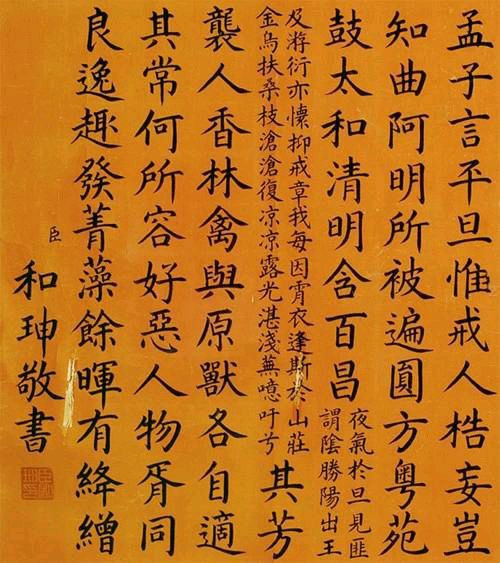 孟子言平旦惟戒人梏妄豈
知曲阿明所被遍圓方粵苑
鼓太和清明含百昌
夜氣於旦見匪
謂陰勝陽出王
及游衍亦懍抑戒章我每因宵衣逢斯於山莊
金烏扶桑枝滄滄復凉凉露光湛淺蕪噫吁兮
其芳
襲人香林禽與原獸各自適
其常何所容好惡人物胥同
良逸趣發菁藻餘暉有絳繒
臣和珅敬書